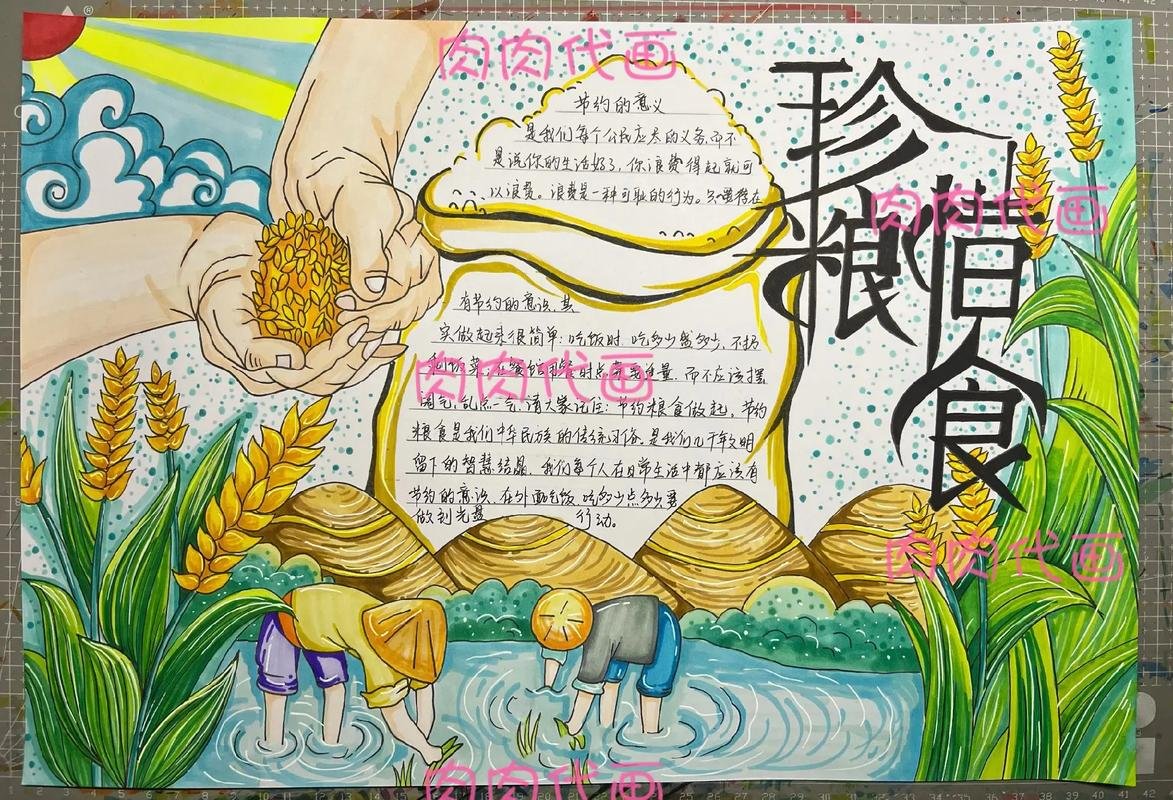 珍惜粮食
节约的意义
是我们每个公民应尽的义务,而不
是说你的生活好了,你浪费得起就可
以浪费。浪费是一种可耻的行为。只要存在
有节约的意识,其
实做起来很简单:吃饭时吃多少盛多少,不扔
剩饭菜,在餐馆用餐时点菜要适量,而不应该摆
阔气,乱点一气,请大家记住:节约粮食做起,节约
粮食是我们中华民族的传统习俗,是我们几千年文明
留下的智慧结晶,我们每个人在日常生活中都应该有
节约的意识,在外面吃饭,吃多少点多少,要
做到光盘 行动。
肉肉代画
肉肉代画
肉肉代画
肉肉代画
肉肉代画